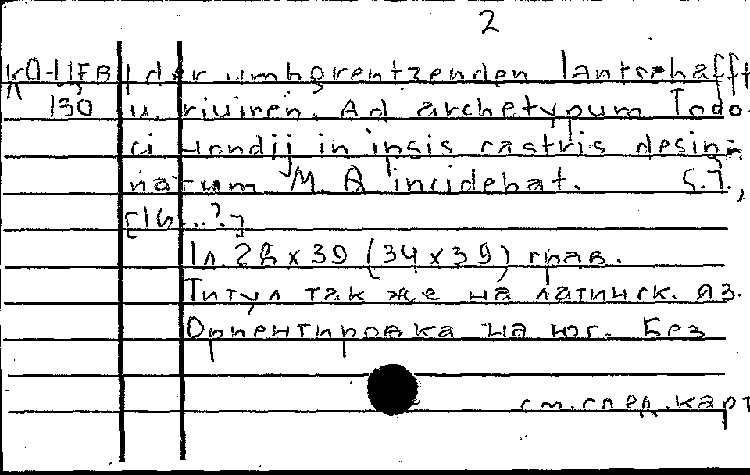 2
КО-НЕВ der umbgrentzenden lantschafft
130 u. riuiren. Ad archetypum Jodo-
ci Hondij in ipsis castris desig-
natum M. Q incidebat. S.l.,
[16..?]
1л. 28 x 39 (34 x 39) грав.
Титул так же на латинск. яз.
Ориентировка на юг. Без
см. след. карт